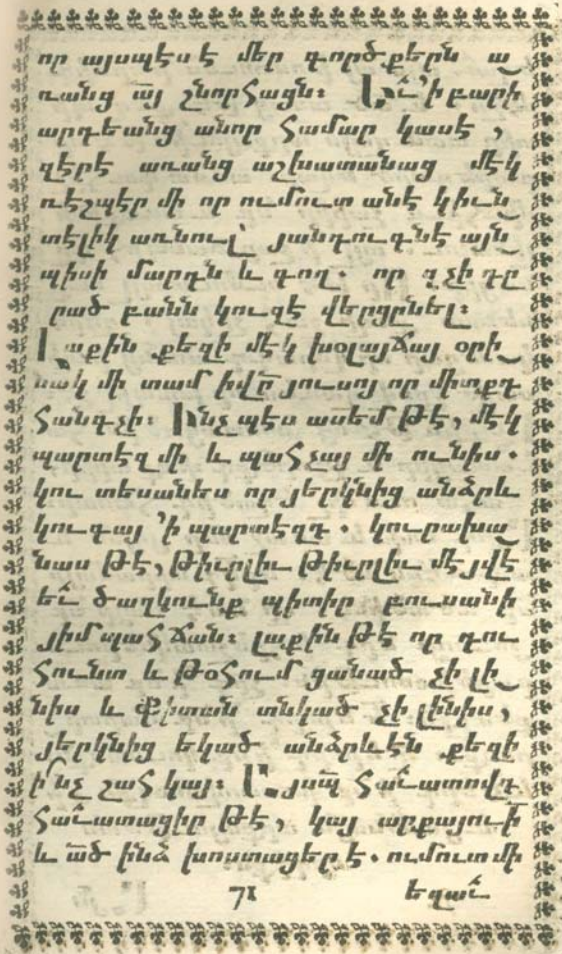 որ այսպէս է մեր գործքերն ա
ռանց այ շնորհացն։ Եւ ՚ի բարի
արդեանց անոր համար կասէ,
զէրէ առանց աշխատանաց մէկ
ռէշպէր մի որ ումուտ անէ կիւն
տէլիկ առնուլ յանդուգնէ այն
պիսի մարդն և գող. որ չի
րած բանն կուզէ վերցընել։
Լաքին քեզի մէկ խօլայճայ օրի
նակ մի տամ իվր յուսոյ որ միտքդ
հանգչի։ Ինչպէս ասեմ թէ, մէկ
պարտէզ մի և պահչայ մի ունիս.
կու տեսանես որ յերկնից անձրև
կուգայ ՚ի պարտէզդ. կուրախա
նաս թէ, թիւրլիւ թիւրլիւ մէյվէ
եւ ծաղկունք պիտիր բուսանի
յիմ պահճան։ լաքին թէ որ դու
հունտ և թօհում ցանած չի լի
նիս և ֆիտան տնկած չի լինիս,
յերկնից եկած անձրևէն քեզի
ի՞նչ շահ կայ։ Այսպ հաւատովդ
հաւատացիր թէ, կայ արքայուի
և ած ինձ խոստացեր է. ումուտ մի
71 եղաւ